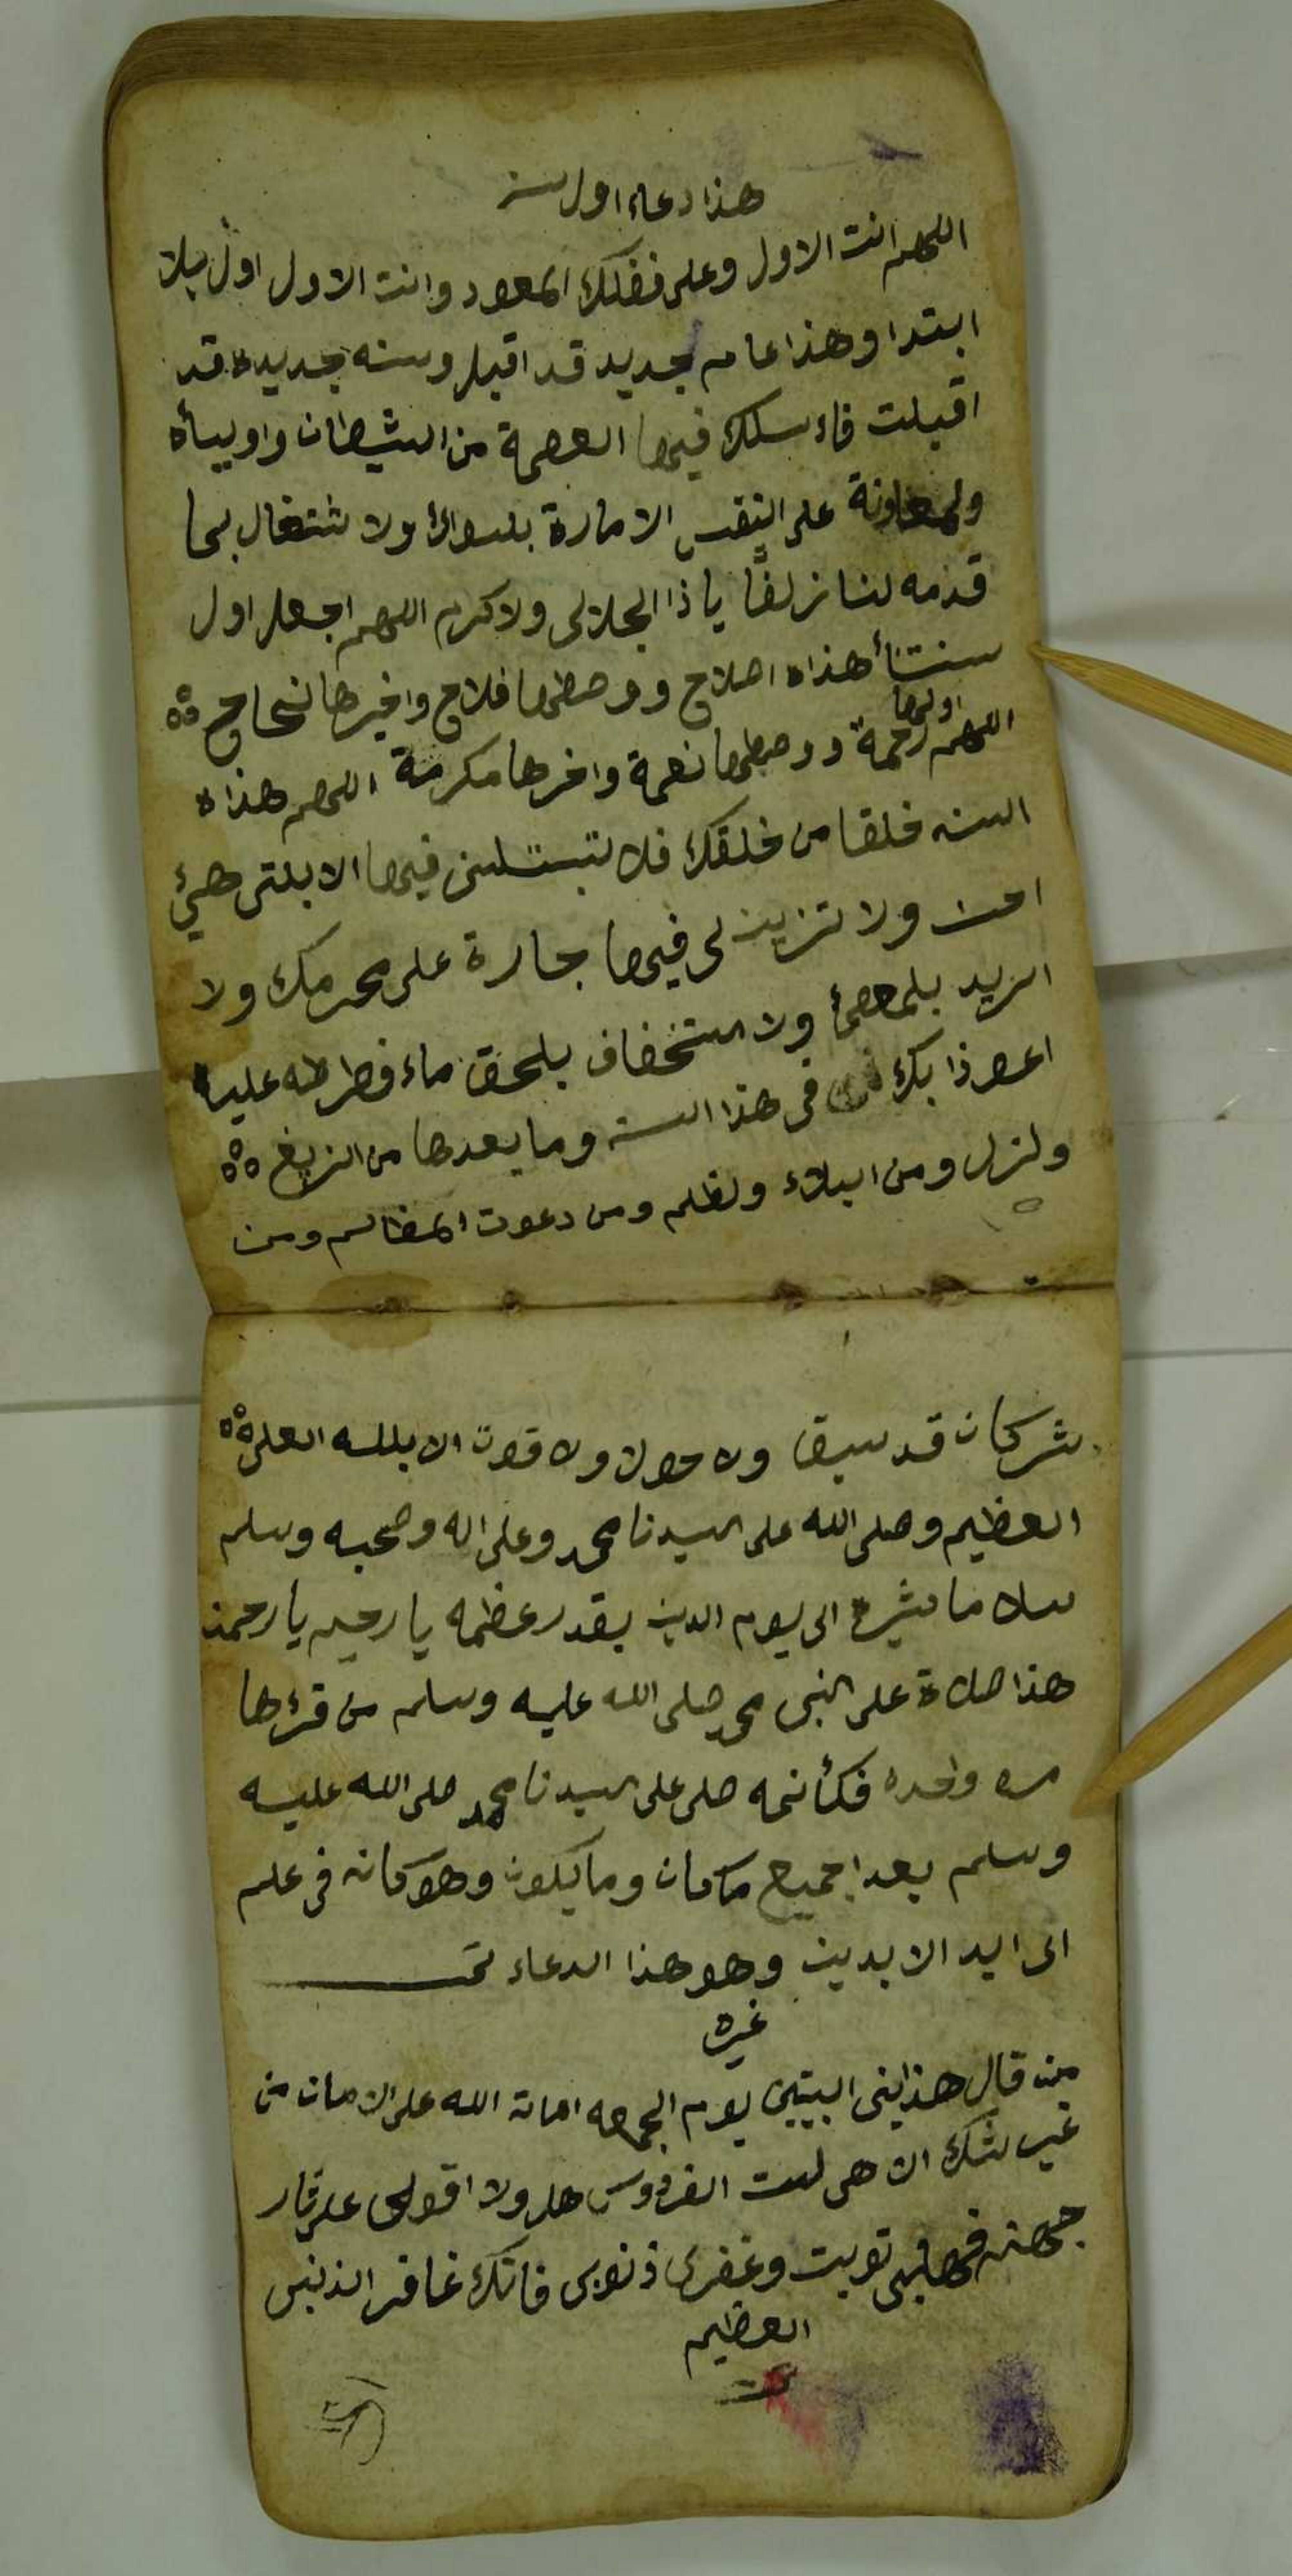 هذا دعاء اول سنه
اللهم انت الاول وعلى فضلك المعود وانت الاول اول بلا
ابتدا وهذا عام جديد قد اقبل وسنه جديده قد
اقبلت فاء سلك فيها العصمة من الشيطان واوليأه
ولمعاونة على النفس الامارة بلسواء ولا شتغال بما
قدمه لنا زلفًا ياذا الجلالى ولاكرم اللهم اجعل اول
سنتنأ هذاه اصلاح ووصطها فلاح واخيرها نجاح
اللهم اولها رحمة ووصطها نعمة واخرها مكرمة اللهم هذاه
السنه خلقا من خلقك فلا تبتلنى فيها الا بلتى هيئ
احسن ولا تزين لى فيها جارة على محرمك ولا
الزيد بلمعصئ ولا استخفاف بلحق ماء فطرطه عليه
اعوذا بك فى هذا السنه وما بعدها من الزيغ
ولزل ومن البلاء ولظلم ومن دعوت المضالم ومن
شر كان قد سبق ولا حول ولا قوت الا بلله العلى
العظيم وصلى الله على سيدنا محمد وعلى اله وصحبه وسلم
سلاما كثيره الى يوم الدين بقدر عظمه يارحيم يارحمن
هذا صلاة على النبى محمد صلى الله عليه وسلم من قرءها
مره واحده فكأنمه صلى على سيدنا محمد صلى الله عليه
وسلم بعد اجميع ماكان وما يكون وهو كانه فى علم
الى ابد الابدين وهو هذا الدعاء تمـ
غيره
من قال هذاينى البيتين يوم الجمعه اماته الله على الامان من
غير شك الاهى لست الفردوس هلا ولا اقوى على نار
جهنم فهابلى توبت وغفرلى ذنوبى فانك غافر الذنب
العظيم
تمت